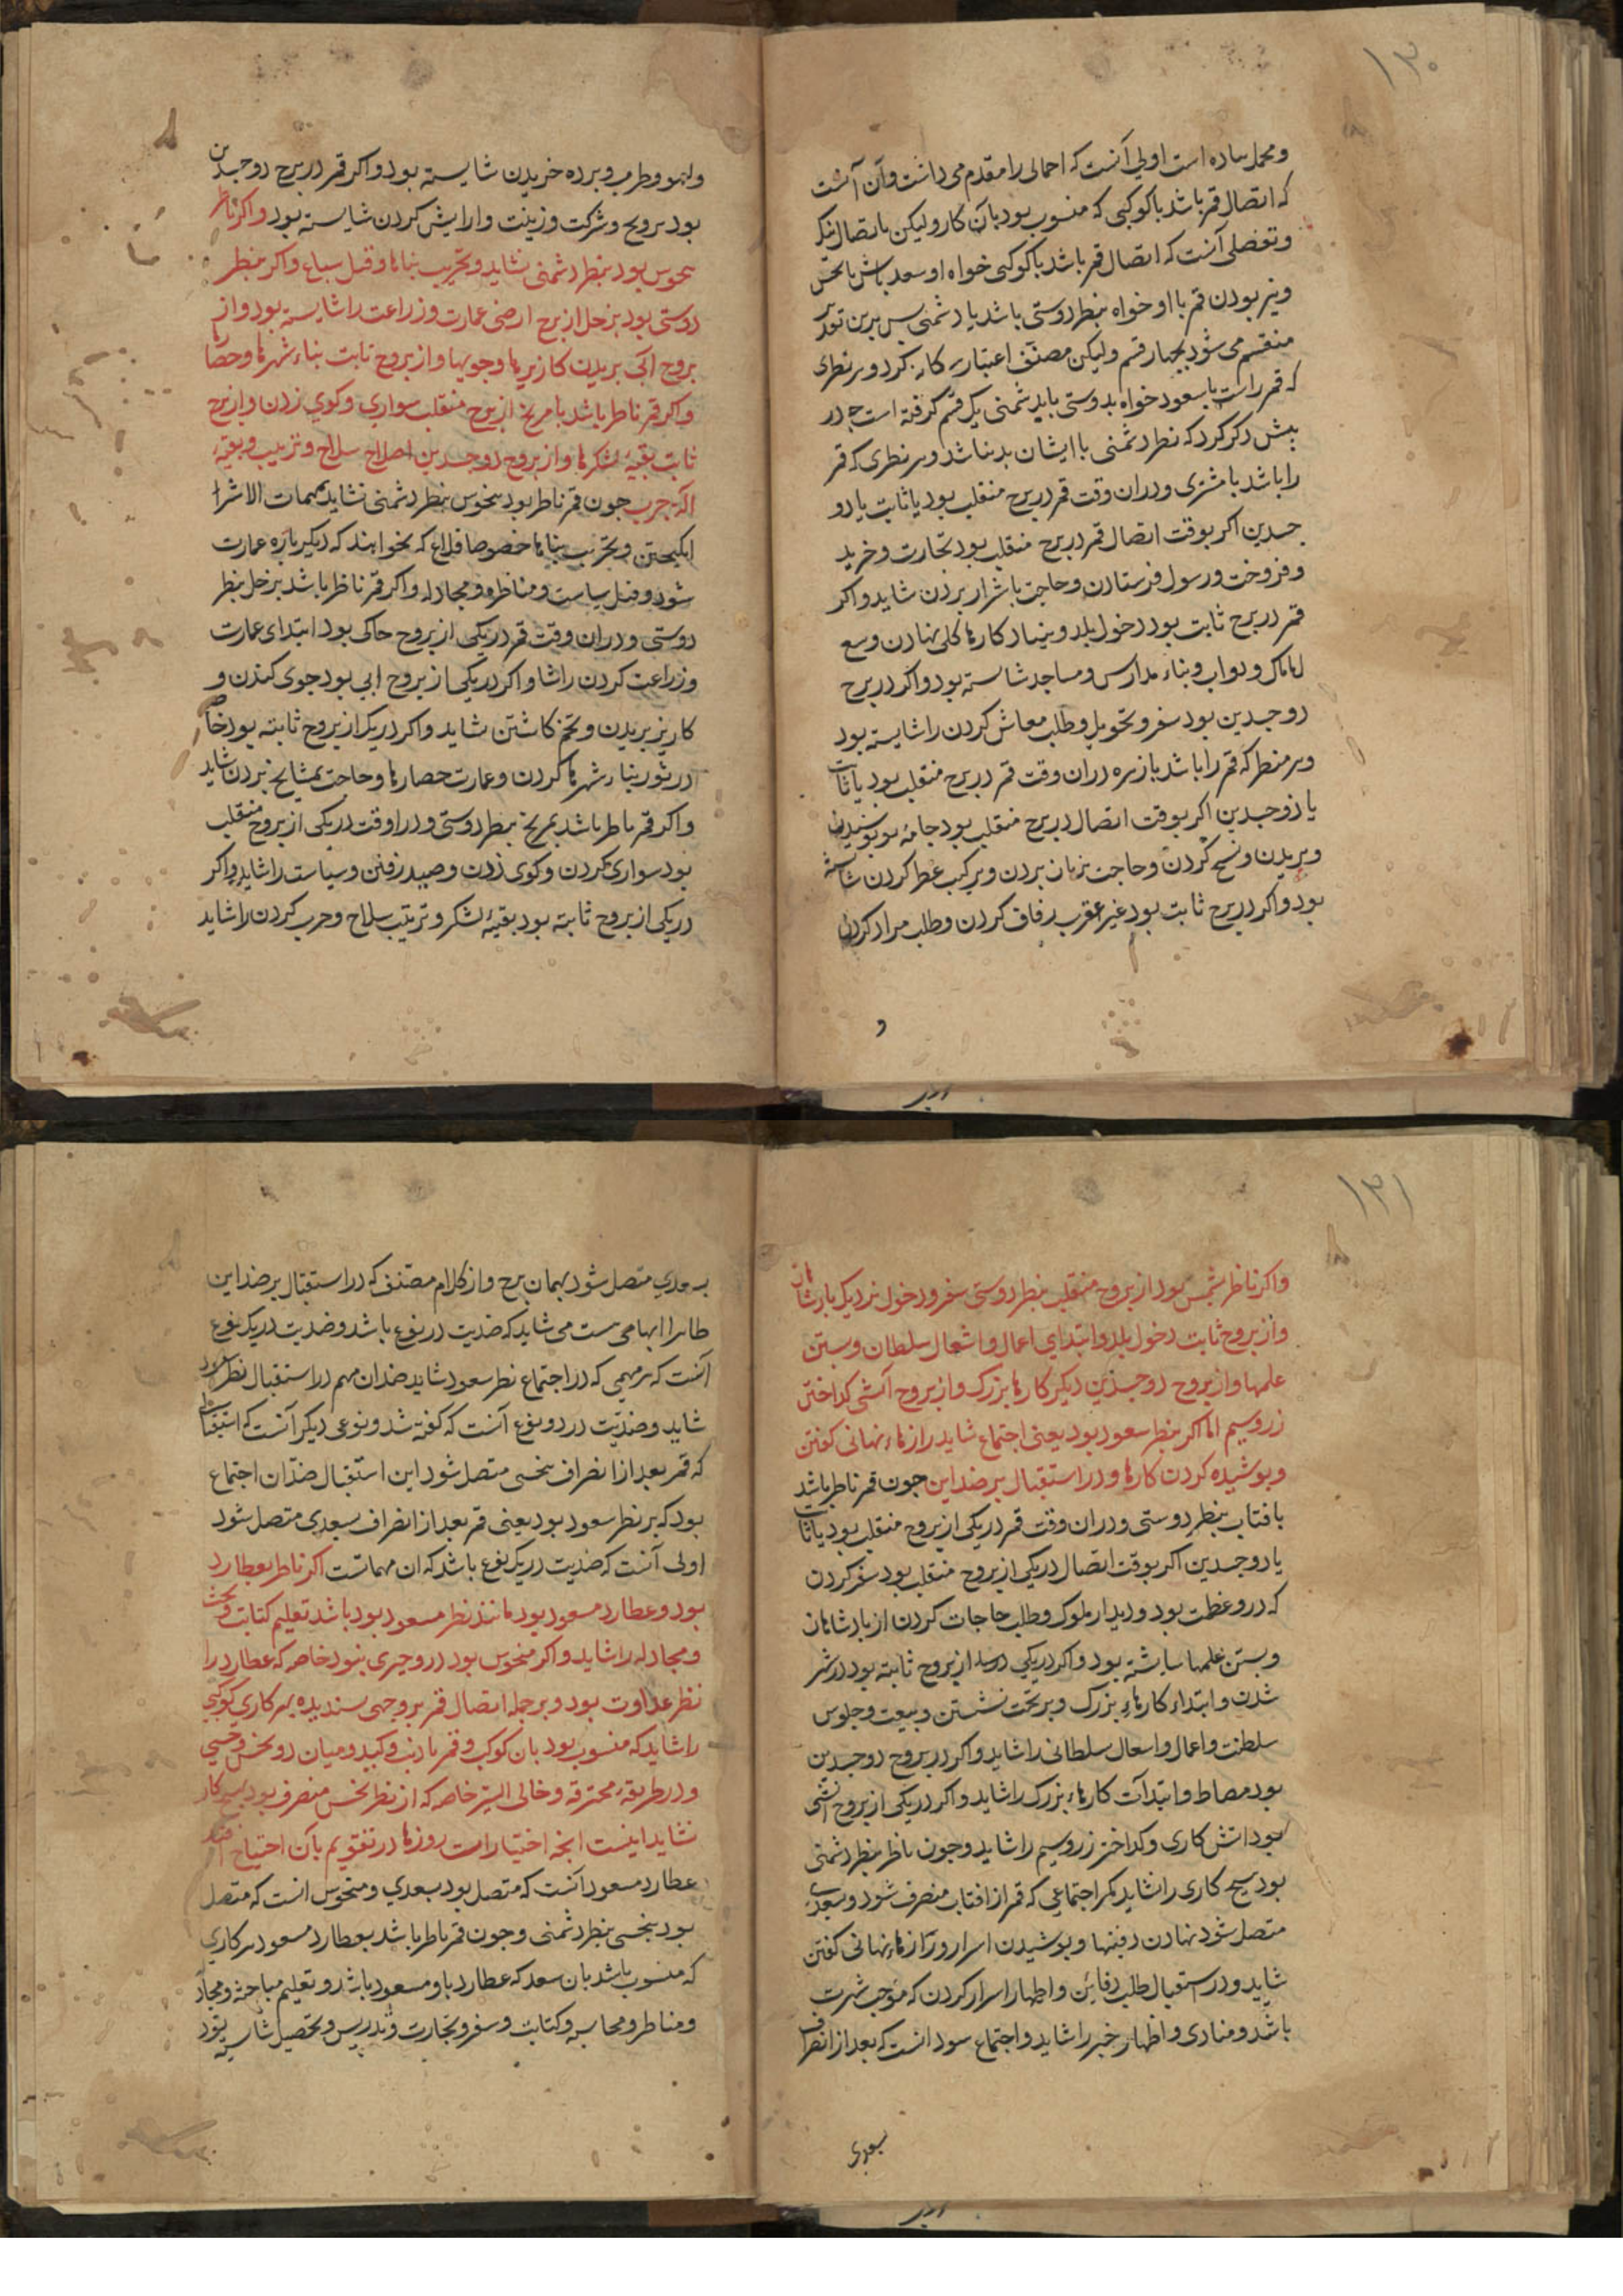 ۱۳۰
ومحمل ساده است اولی آنست که احمالی را مقدم می داشت وآن آنست
که اتصال قمر باشد باکوکبی که منسوب بود بآن کار ولیکن باتصال نیک
وتفصلی آنست که اتصال قمر باشد باکوکبی خواه او سعد باش یا نحس
ونیز بودن قمر با او خواه بنظر دوستی باشد یا دشمنی بس برین تقدیر
منقسم می شود بچهار قسم ولیکن مصنّف اعتبار سه کار نکرد وهر نظری
که قمر راست با سعود خواه بدوستی یا بدشمنی یک قسم کرفته است چه در
بیش ذکر کرد که نظر دشمنی با ایشان بد نباشد وهر نظری که قمر
را باشد با مشتری ودران وقت قمر در برج منقلب بود یا ثابت یا ذو
جسدین اکر بوقت اتصال قمر در برج منقلب بود تجارت وخرید
وفروخت ورسول فرستادن وحاجت باشراز بردن شاید واکر
قمر در برج ثابت بود دخول بلد وبنیاد کارها کلی نهادن وبیع
املاک ودواب وبناء مدارس ومساجد شاسته بود واکر در برج
ذوجسدین بود سفر وتحویل وطلب معاش کردن را شایسته بود
وهر منظر که قمر را باشد با زهره دران وقت قمر در برج منقلب بود یا ثابت
یا ذوجسدین اکر بوقت اتصال در برج منقلب بود جامهٔ نو پوشیدن
وبریدن ونسج کردن وحاجت بزنان بردن وترکیب عطر کردن شایسته
بود واکر در برج ثابت بود غیر عقرب زفاف کردن وطلب مراد کردن
و
ولهو وطرب وبرده خریدن شایسته بود واکر قمر در برج ذوجسدین
بود تزویج وشرکت وزینت وارایش کردن شایسته بود واکر ناظر
بنحوس بود بنظر دشمنی نشاید وتخریب بناها وقتل سباع واکر بنظر
دوستی بود بزحل از برج ارضی عمارت وزراعت را شایسته بود واز
بروج ابی بریدن کازیرها وجویها واز بروج ثابت بناء شهرها وحصارها
واکر قمر ناظر باشد با مریخ از برج منقلب سواری وکوی زدن واز برج
ثابت بقیهٔ لشکرها واز بروج ذوجسدین اصلاح سلاح وترتیب وبقیهٔ
آلة حرب جون قمر ناظر بود بنحوس بنظر دشمنی نشاید مهمات الا شرا
انکیختن وتخریب بناها خصوصا قلاع که نخواهند که دیکرباره عمارت
شود وقتل سیاست ومناظره ومجادله واکر قمر ناظر باشد بزحل بنظر
دوستی ودران وقت قمر در یکی از بروج خاکی بود ابتدای عمارت
وزراعت کردن را شاید واکر در یکی از بروج ابی بود جوی کندن و
کاریز بریدن وتخم کاشتن شاید واکر در یکی از بروج ثابته بود خاصه
در ثور بناء شهرها کردن وعمارت حصارها وحاجت بمشایخ بردن شاید
واکر قمر ناظر باشد بمریخ بنظر دوستی ودر اوقت در یکی از بروج منقلب
بود سواری کردن وکوی زدن وصید رفتن وسیاست را شاید واکر
در یکی از بروج ثابته بود بقیهٔ لشکر وترتیب سلاح وحرب کردن را شاید
۱۳۱
واکر ناظر بشمس بود از بروج منقلب بنظر دوستی سفر ودخول نزدیک بادشاهان
واز بروج ثابت دخول بلد وابتدای اعمال واشغال سلطان وبستن
علمها واز بروج ذوجسدین دیکر کارها بزرک واز بروج آتشی کداختن
زر وسیم اما اکر بنظر سعود بود یعنی اجتماع شاید رازها نهانی کفتن
وپوشیده کردن کارها ودر استقبال بر ضد این جون قمر ناظر باشد
بافتاب بنظر دوستی ودران وقت قمر در یکی از بروج منقلب بود یا ثابت
یا ذوجسدین اکر بوقت اتصال در یکی از بروج منقلب بود سفر کردن
که درو عظمت بود ودیدار ملوک وطلب حاجات کردن از بادشاهان
وبستن علمها شایسته بود واکر در یکی از بروج ثابته بود در شهر
شدن وابتداء کارهاء بزرک وبر تخت نشستن وبیعت وجلوس
سلطنت واعمال واشغال سلطانی را شاید واکر در بروج ذوجسدین
بود وابتدآت کارهاء بزرک را شاید واکر در یکی از بروج آتشی
بود اتش کاری وکداختن زر وسیم را شاید وجون ناظر بنظر دشمنی
بود هیچ کاری را نشاید مکر اجتماعی که قمر از افتاب منصرف شود وبسعدی
متصل شود نهادن دفینها وپوشیدن اسرار ورازهاء نهانی کفتن
شاید ودر استقبال طلب دفاین واظهار اسرار کردن که موجب شهرت
باشد ومنادی واظهار خبر را شاید واجتماع سعود انست که بعد از انصراف
بسعدی
بسعدی متصل شود بهمان برج واز کلام مصنف که در استقبال بر ضد این
ظاهرا ابهامی هست می شاید که ضدیت در نوع باشد وضدیت در یک نوع
آنست که هر مهمی که در اجتماع نظر سعود شاید ضد ان مهم در استقبال نظر سعود
شاید وضدیّت در دو نوع آنست که کفته شد ونوعی دیکر آنست که استقبالی
که قمر بعد از انصراف بنحسی متصل شود این استقبال ضد ان اجتماع
بود که بر نظر سعود بود یعنی قمر بعد از انصراف بسعدی متصل شود
اولی آنست که ضدیت در یک نوع باشد که ان مهماتست اکر ناظر بعطارد
بود وعطارد مسعود بود مانند نظر مسعود بود باشد تعلیم کتابت وبحث
ومجادله را شاید واکر منحوس بود در وچیزی نبود خاصه که عطارد را
نظر عداوت بود وبر جمله اتصال قمر بر وجهی پسندیده بهر کاری کوکبی
را شاید که منسوب بود بان کوکب وقمر با ذنب وکید ومیان دو نحس ووحشی
ودر طریقهٔ محترقه وخالی السیر خاصه که از نظر نحس منصرف بود هیچ کار
نشاید اینست انچه اختیارات روزها در تقویم بآن احتیاج افتد
عطارد مسعود آنست که متصل بود بسعدی ومنحوس انست که متصل
بود بنحسی بنظر دشمنی وجون قمر ناظر باشد بعطارد مسعود هر کاری
که منسوب باشد بان سعد که عطارد باو مسعود باشد وتعلیم مباحثه ومجادله
ومناظره ومحاسبه وکتابت وسفر وتجارت وتدریس وتحصیل شایسته بود